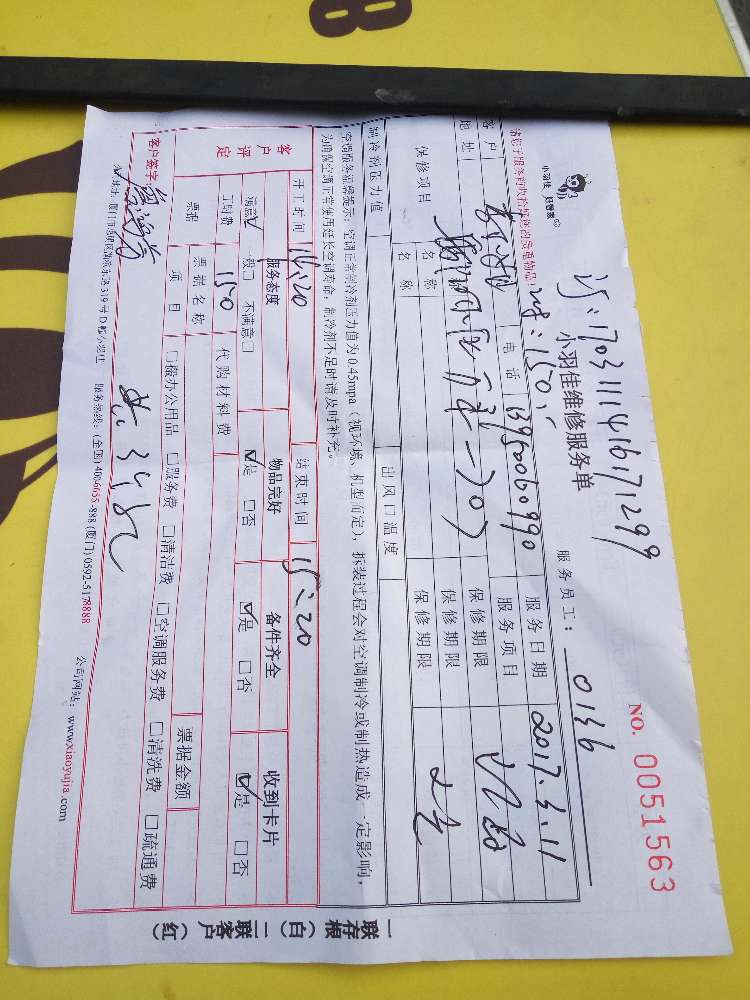 8
订:1703111416171299
小羽佳 好管家
NO. 0051563
小羽佳维修服务单
服务员工: 0136
请您于服务前收拾好您的贵重物品!
时:150
客户 电话 13950060990 服务日期 2017.3.11
地址 服务项目
保修项目 名称 保修期限
名称 保修期限
制冷剂压力值 出风口温度
空调服务温馨提示:空调正常制冷剂压力值为0.45mpa(视环境、机型而定),拆装过程会对空调制冷或制热造成一定影响,
为确保空调正常使用延长空调寿命,制冷剂不足时请及时补充。
开工时间 14:20 结束时间 15:20
客户评定 服务态度 物品完好 备件齐全 收到卡片
满意☑ 一般□ 不满意□ ☑是 □否 ☑是 □否 ☑是 □否
工时费 150 代购材料费
票据 票据名称 票据金额
项目 □做办公用品 □服务费 □清洁费 □空调服务费 □清洗费 □疏通费
客户签字
服务热线:(全国)400-6055-888 (厦门)0592-5178888 公司网站:www.xiaoyujia.com
一联存根(白) 二联客户(红)